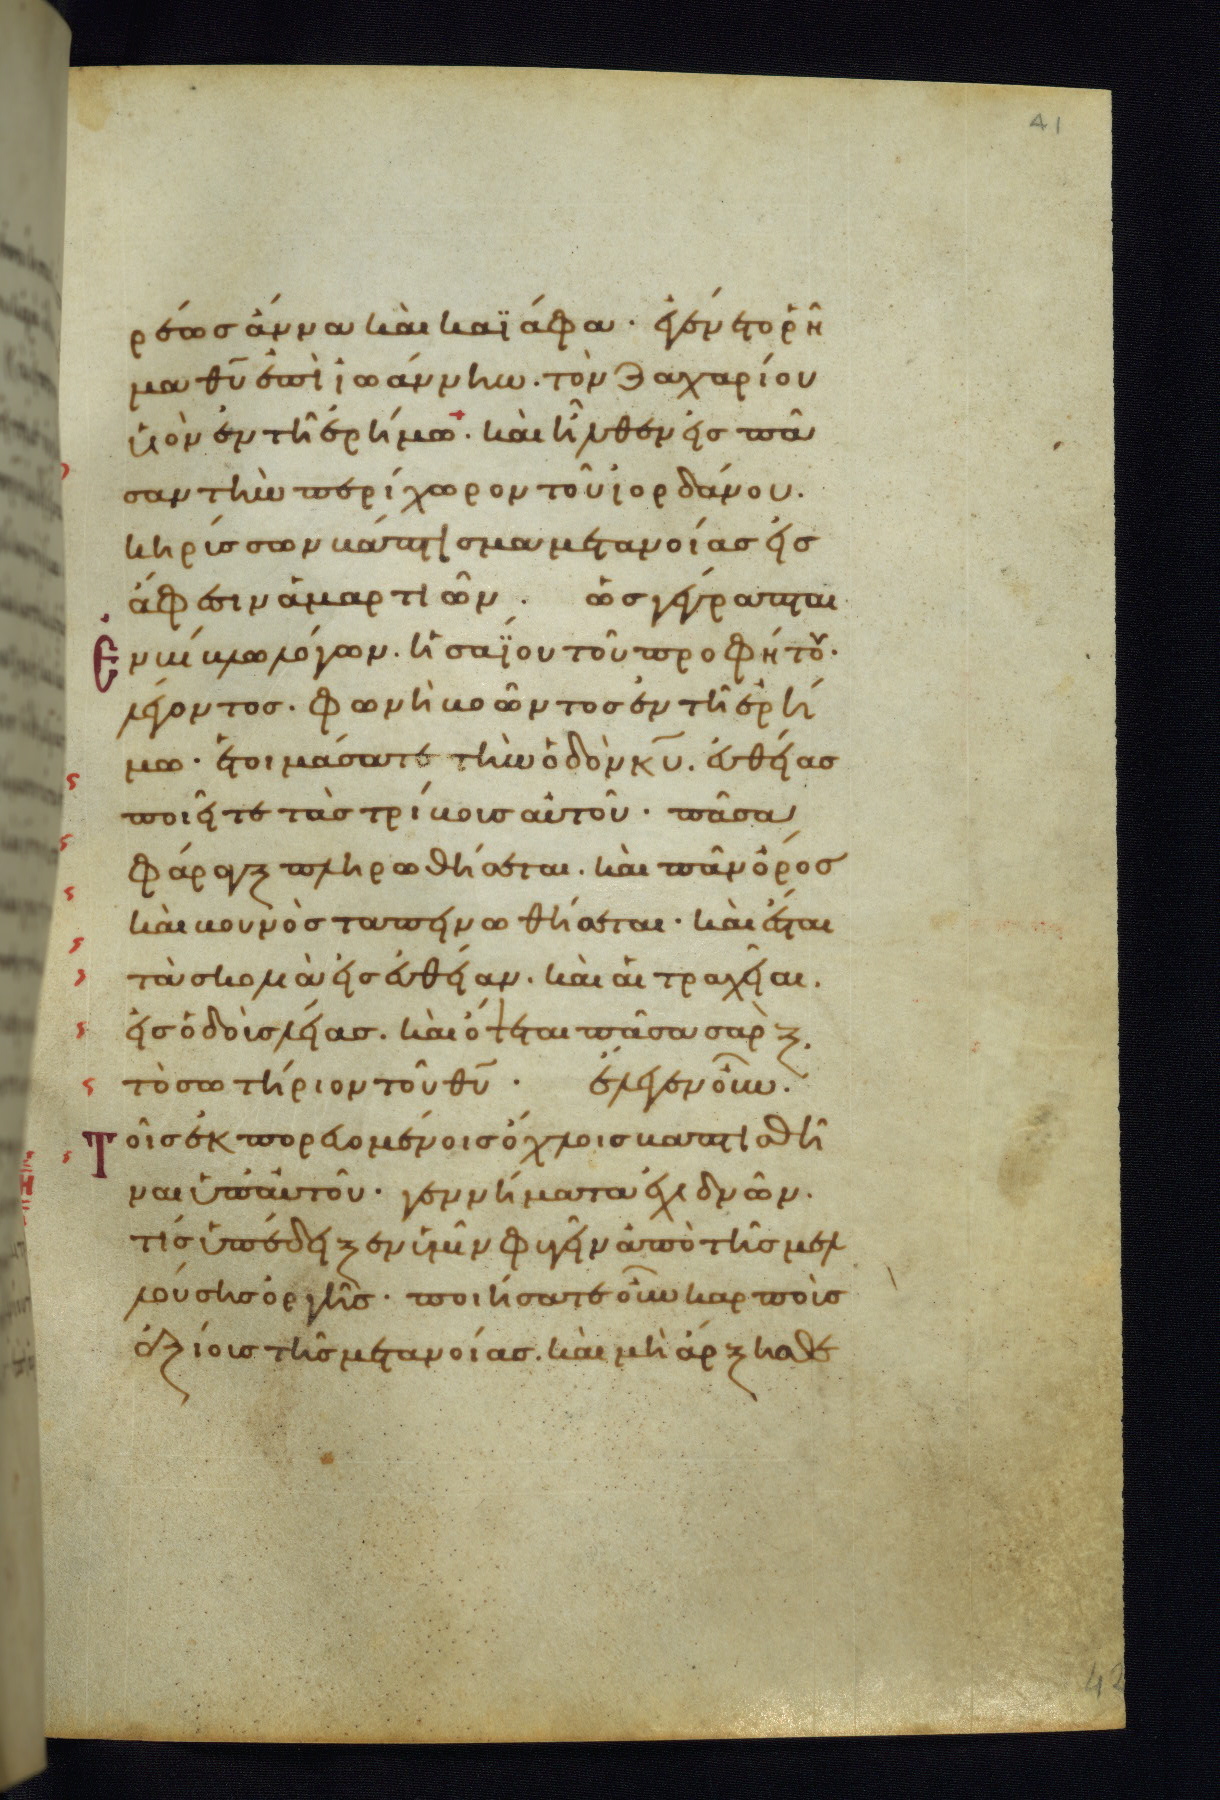 41
ρέως ἄννα καὶ καϊάφα · ἐγένετο ῥῆ
μα θυ ἐπὶ ἰωάννην · τὸν Ζαχαρίου
υἱὸν ἐν τῆ ἐρήμω · καὶ ἦλθεν εἰς πᾶ
σαν τὴν περίχωρον τοῦ ἰορδάνου ·
κηρύσσων βάπτισμα μετανοίας εἰς
ἄφεσιν ἁμαρτιῶν · ὡς γέγραπται
Ἐν βίβλω λόγων · ἡσαΐου τοῦ προφήτου ·
λέγοντος · φωνὴ βοῶντος ἐν τῆ ἐρή
μω · ἑτοιμάσατε τὴν ὁδὸν κυ · εὐθείας
ποιεῖτε τὰς τρίβους αὐτοῦ · πᾶσα
φάραγξ πληρωθήσεται · καὶ πᾶν ὄρος
καὶ βουνὸς ταπεινωθήσεται · καὶ ἔσται
τὰ σκολιὰ εἰς εὐθείαν · καὶ αἱ τραχεῖαι ·
εἰς ὁδοὺς λείας · καὶ ὄψεται πᾶσα σὰρξ ·
τὸ σωτήριον τοῦ θυ · ἔλεγεν οὖν ·
Τοῖς ἐκπορευομένοις ὄχλοις βαπτισθῆ
ναι ὑπ' αὐτοῦ · γεννήματα ἐχιδνῶν ·
τίς ὑπέδειξεν ὑμῖν φυγεῖν ἀπὸ τῆς μελ
λούσης ὀργῆς · ποιήσατε οὖν καρποὺς
ἀξίους τῆς μετανοίας · καὶ μὴ ἄρξησθε
42